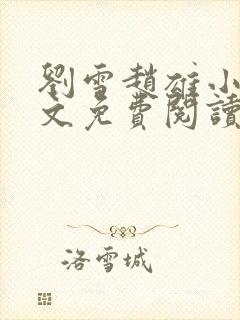 劉雪趙雄小
文免費閱讀
洛雪城